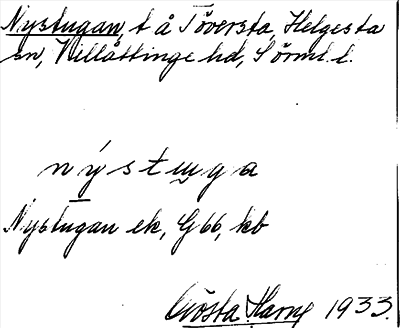 Nystugan, t å Töversta, Helgesta
sn, Villåttinge hd, Sörml. l.
nýstuga
Nystugan ek, G66, kb
Gösta Harne 1933.